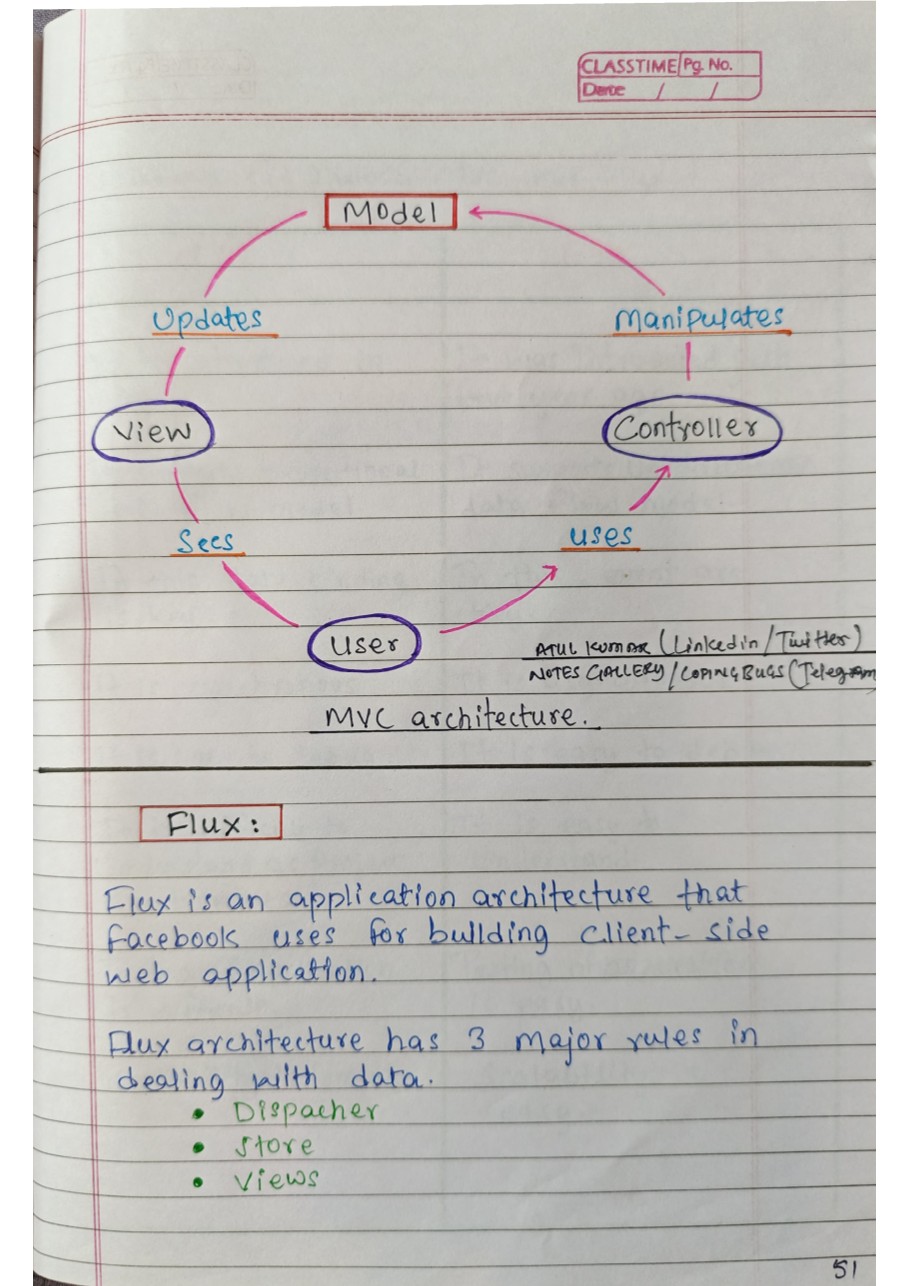 CLASSTIME Pg. No.
Date / /
Model
Updates
Manipulates
View
Controller
Sees
uses
User
ATUL KUMAR (Linkedin/Twitter)
NOTES GALLERY/COPINGBUGS (Telegram
MVC architecture.
Flux:
Flux is an application architecture that
facebook uses for building client-side
web application.
Flux architecture has 3 major rules in
dealing with data.
• Dispacher
• Store
• Views
51